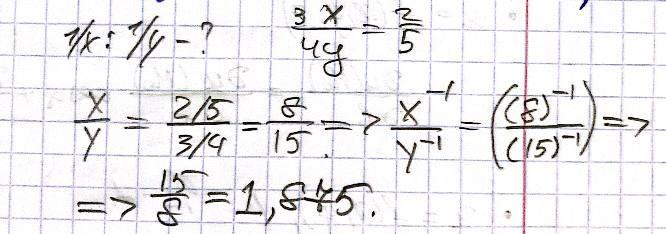 1/x : 1/y - ? 3x/4y = 2/5
x/y = (2/5)/(3/4) = 8/15 => x⁻¹/y⁻¹ = ((8)⁻¹/(15)⁻¹) =>
=> 15/8 = 1,875.